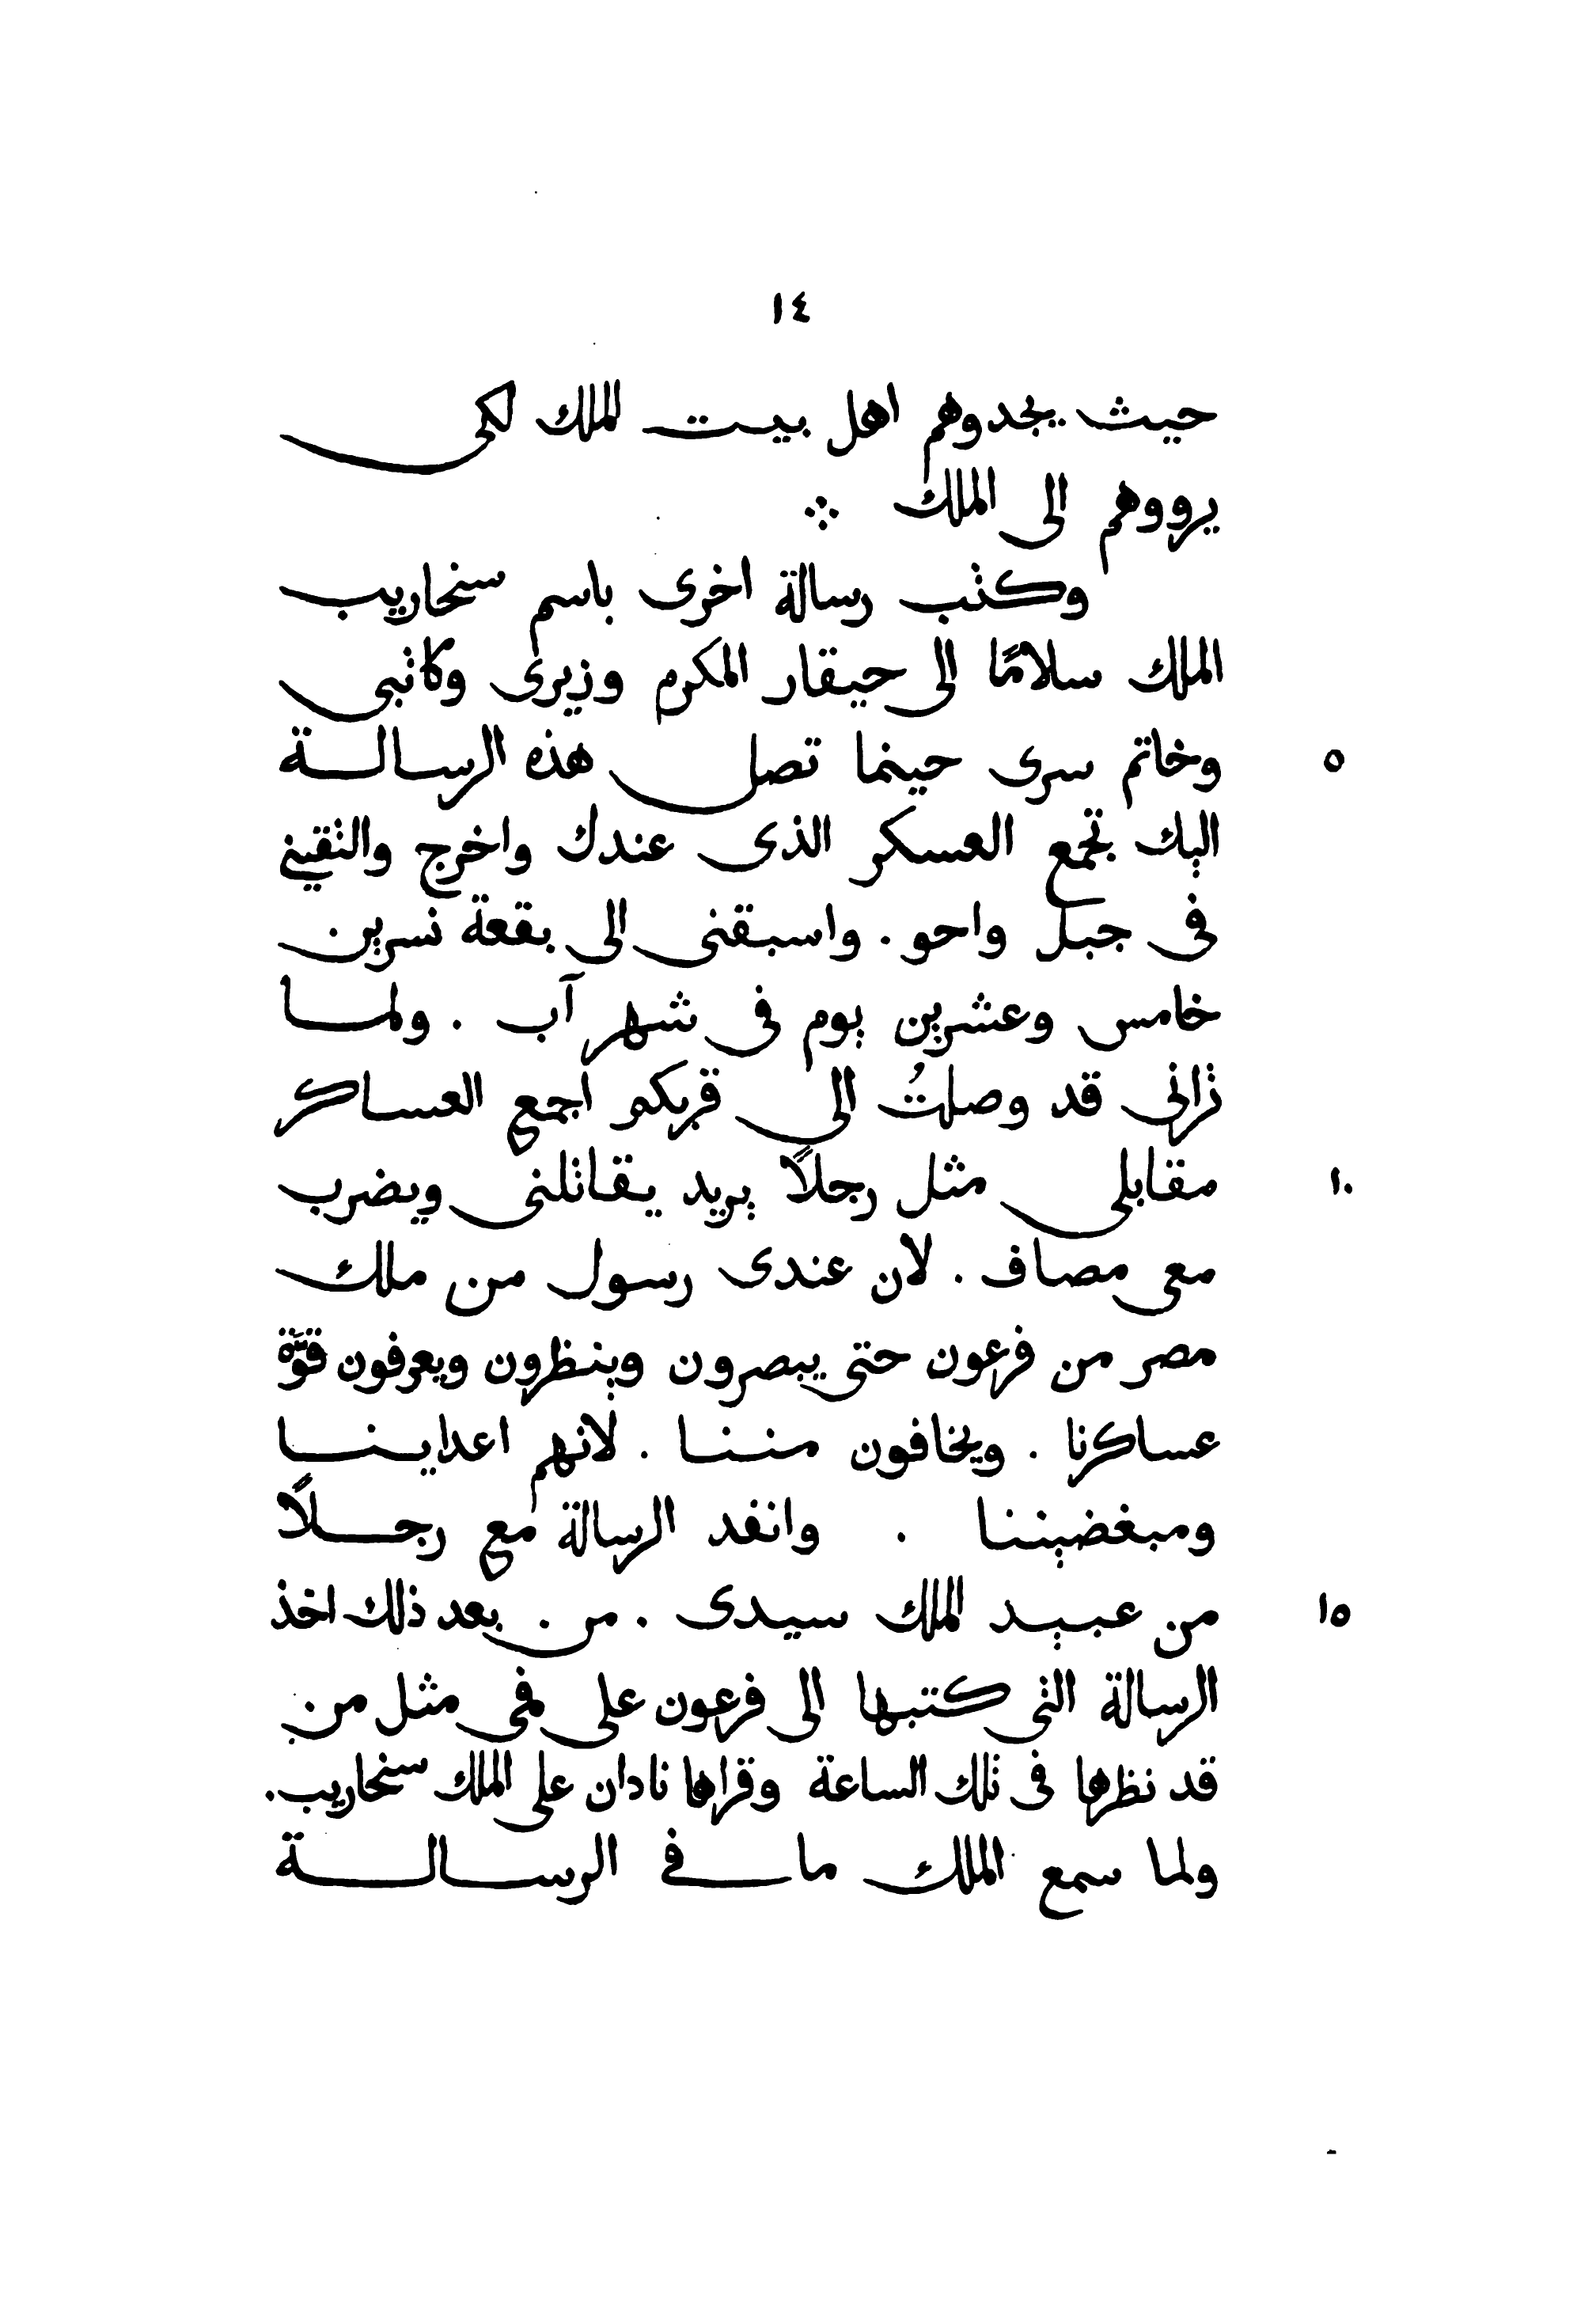 ١٤
حيث يجدوهم اهل بيت الملك لكى
يرووهم الى الملك ∴
وكتب رسالة اخرى باسم سنحاريب
الملك سلامًا الى حيقار المكرم وزيرى وكاتبى
وخاتم سرى حينما تصل هذه الرسالة
٥
اليك تجمع العسكر الذى عندك واخرج والتقينى
فى جبل واحو . واسبقنى الى بقعة نسرين
خامس وعشرين يوم فى شهر آب . ولما
ترانى قد وصلتُ الى قربكم اجمع العساكر
مقابلى مثل رجلاً يريد يقاتلنى ويضرب
١٠
معى مصاف . لان عندى رسول من ملك
مصر من فرعون حتى يبصرون وينظرون ويعرفون قوّة
عساكرنا . ويخافون مننا . لانهم اعداينا
ومبغضيننا . وانفد الرسالة مع رجلاً
من عبيد الملك سيدى . من بعد ذلك اخذ
١٥
الرسالة التى كتبها الى فرعون على فمى مثل من
قد نظرها فى تلك الساعة وقراها نادان على الملك سنحاريب .
ولما سمع الملك ما فى الرسالة